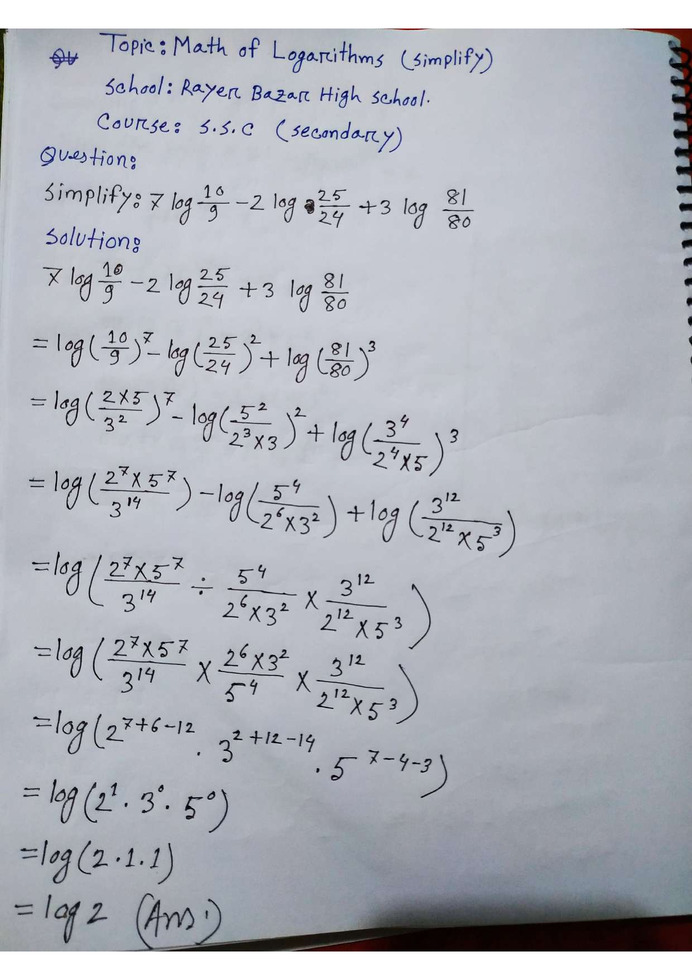 Topic: Math of Logarithms (simplify)
School: Rayer Bazar High school.
Course: S.S.C (secondary)
Question:
Simplify: 7 log 10/9 - 2 log 25/24 + 3 log 81/80
Solution:
7 log 10/9 - 2 log 25/24 + 3 log 81/80
= log(10/9)⁷ - log(25/24)² + log(81/80)³
= log(2×5/3²)⁷ - log(5²/2³×3)² + log(3⁴/2⁴×5)³
= log(2⁷×5⁷/3¹⁴) - log(5⁴/2⁶×3²) + log(3¹²/2¹²×5³)
= log(2⁷×5⁷/3¹⁴ ÷ 5⁴/2⁶×3² × 3¹²/2¹²×5³)
= log(2⁷×5⁷/3¹⁴ × 2⁶×3²/5⁴ × 3¹²/2¹²×5³)
= log(2⁷⁺⁶⁻¹² · 3²⁺¹²⁻¹⁴ · 5⁷⁻⁴⁻³)
= log(2¹ · 3⁰ · 5⁰)
= log(2·1·1)
= log 2 (Ans:)